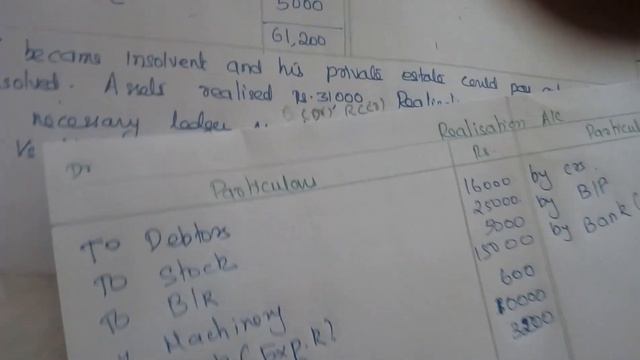 5000
61,200
became insolvent and his private estate could pay
solved. Assets realised Rs. 31000
necessary ledger
Realisation A/c
Dr
Particulars
Rs.
Particul
To Debtors
16000
by crs.
To Stock
25000
by B/P
To B/R
5000
by Bank (
Machinery
15000
(Exp. R)
600
10000
3200